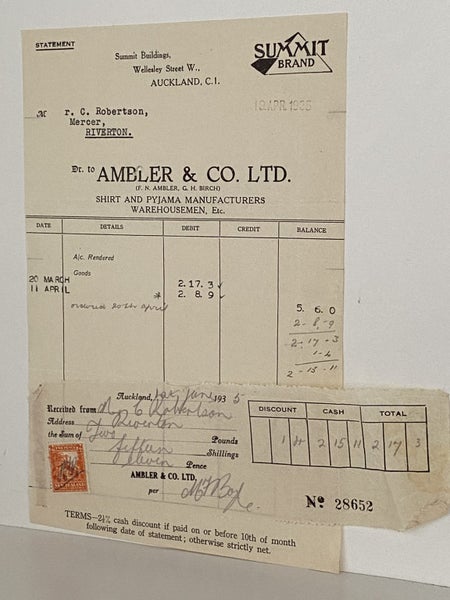 STATEMENT
Summit Buildings,
Wellesley Street W.,
AUCKLAND, C.1.
SUMMIT
BRAND
19 APR. 1935
M r. C. Robertson,
Mercer,
RIVERTON.
Dr. to AMBLER & CO. LTD.
(F. N. AMBLER, G. H. BIRCH)
SHIRT AND PYJAMA MANUFACTURERS
WAREHOUSEMEN, Etc.
DATE DETAILS DEBIT CREDIT BALANCE
A/c. Rendered
Goods
20 MARCH 2. 17. 3 ✓
11 APRIL * 2. 8. 9 ✓
ordered 20th April 5. 6. 0
2 - 8 - 9
2 - 17 - 3
1 - 4
2 - 15 - 11
Auckland, 1st June 1935
Received from Mr C Robertson
Address Riverton
the Sum of Two Pounds
fifteen Shillings
eleven Pence
AMBLER & CO. LTD.
per
DISCOUNT CASH TOTAL
1 4 2 15 11 2 17 3
No 28652
TERMS—2½% cash discount if paid on or before 10th of month
following date of statement; otherwise strictly net.